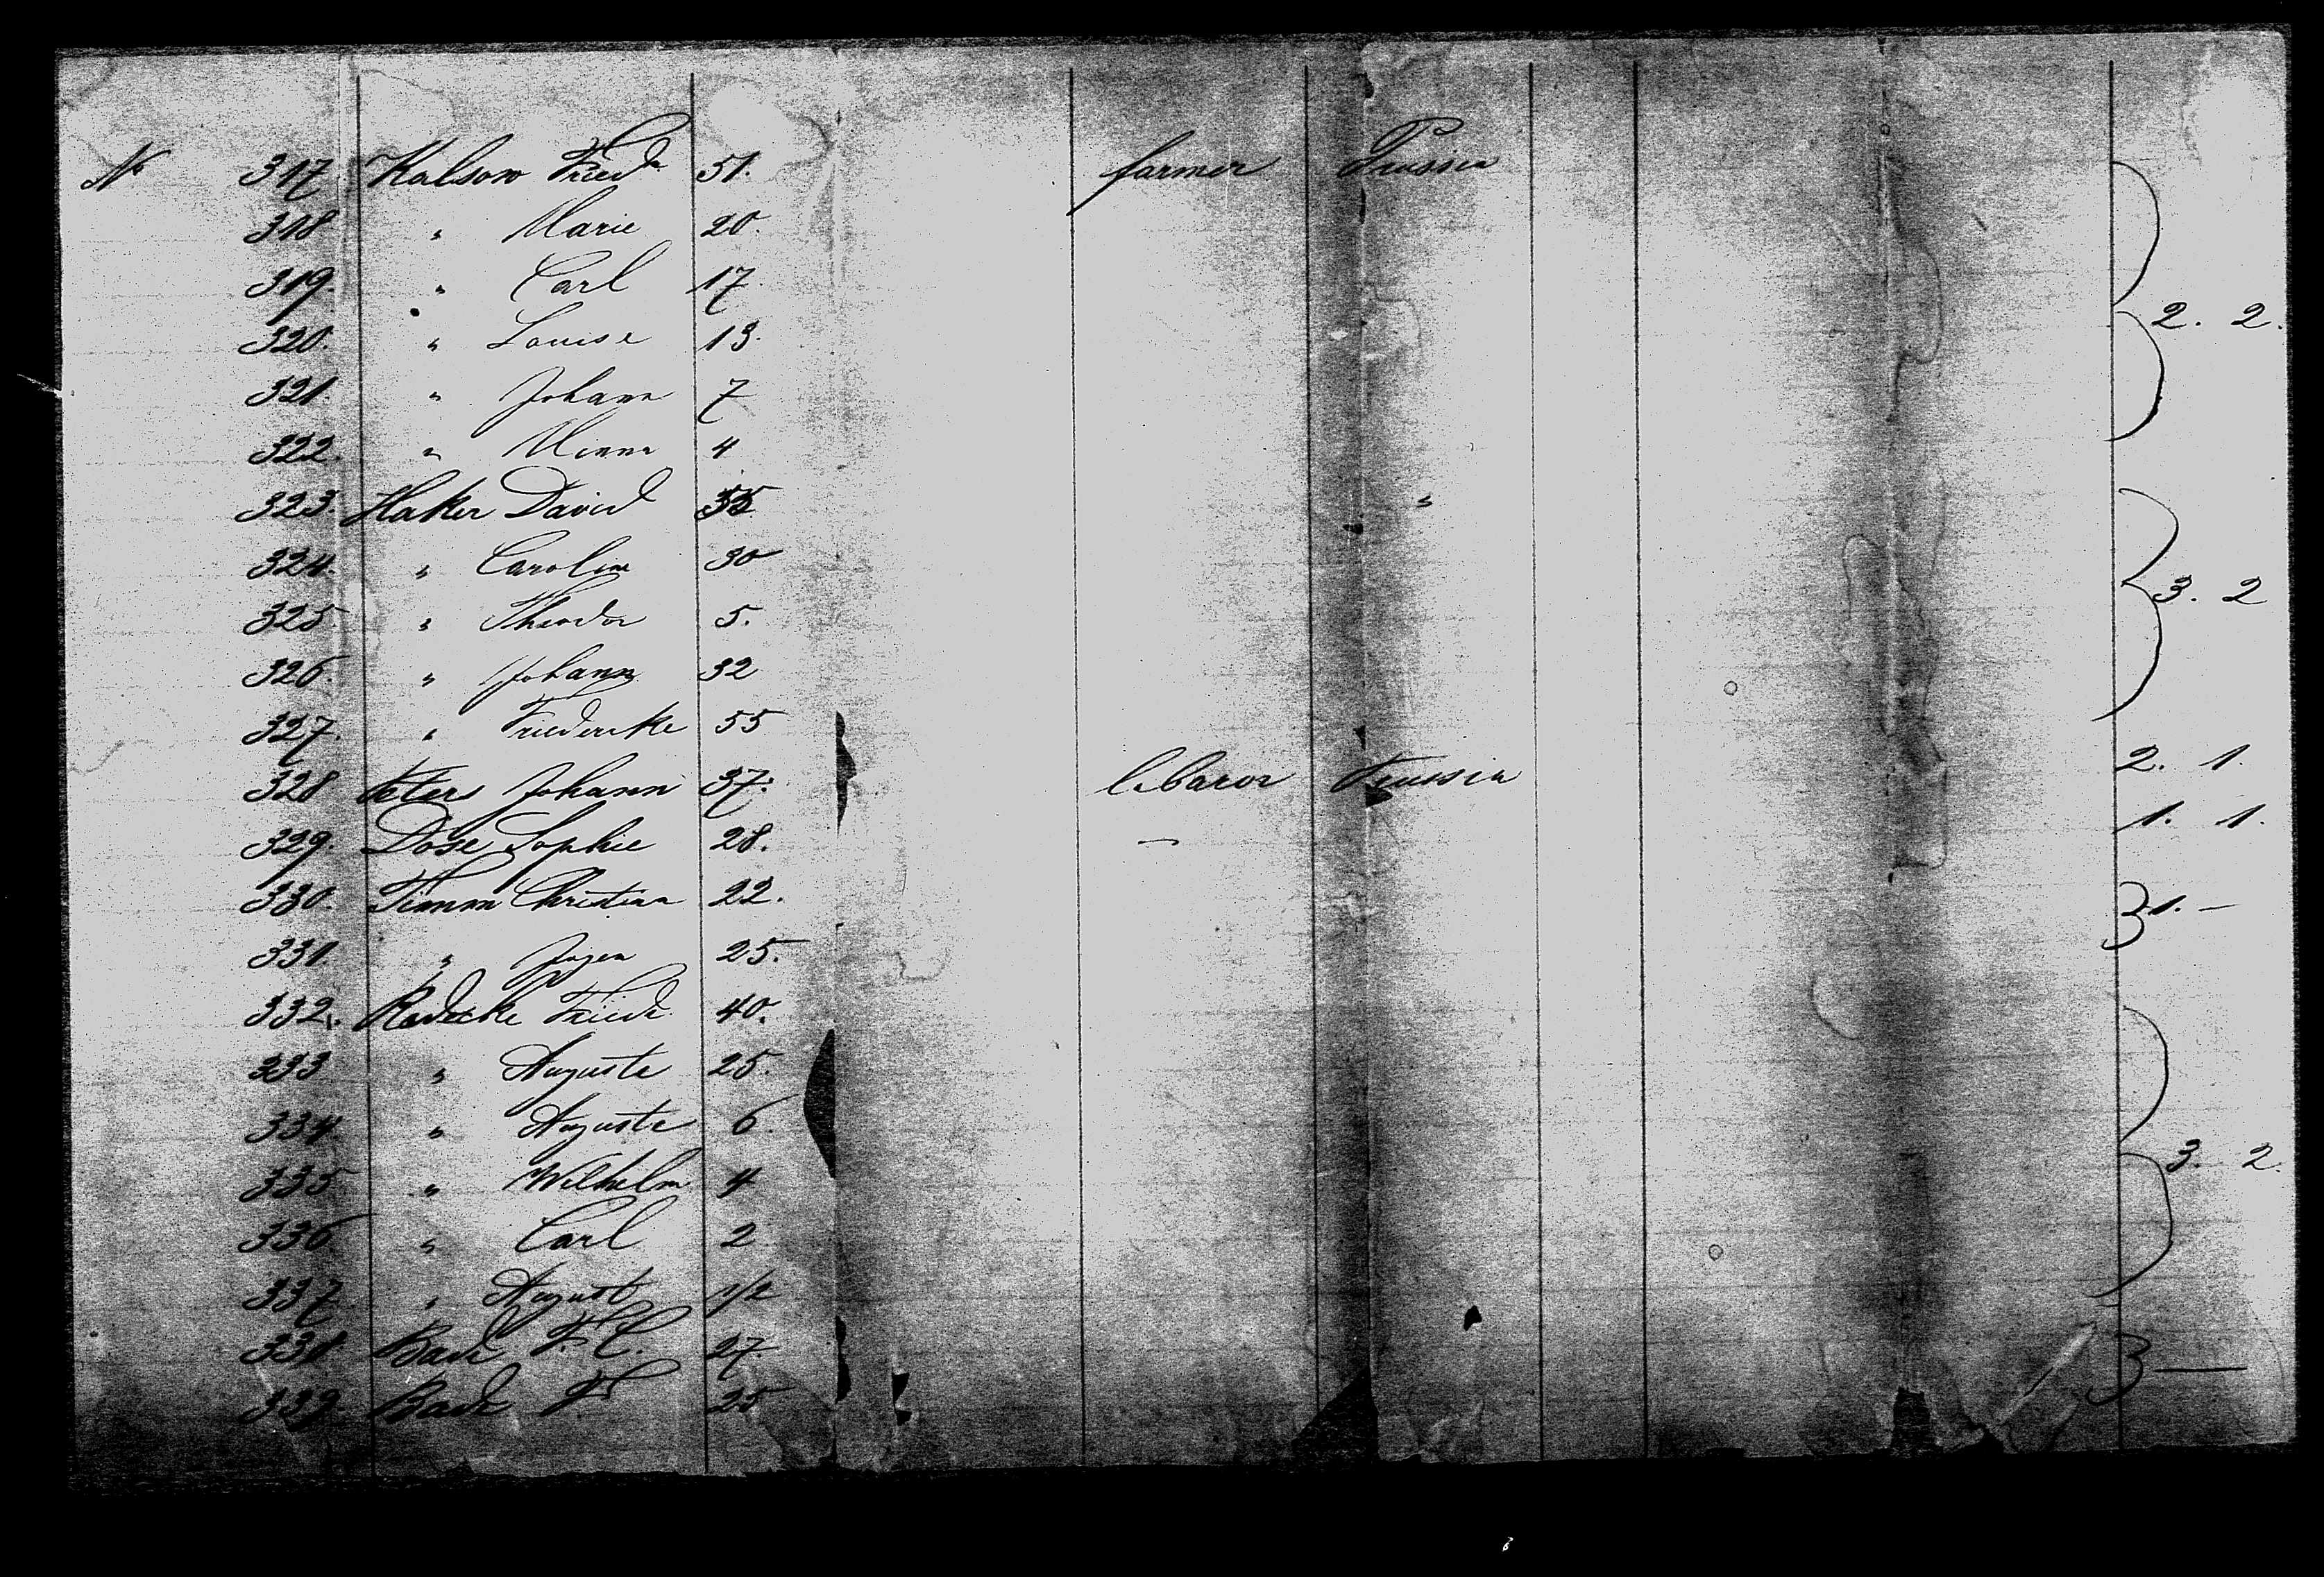 No 317 Kalsow Friedr. 51. farmer Prussia
318 " Marie 20.
319. " Carl 17.
2. 2.
320. " Louise 13.
321. " Johann 7
322. " Minna 4
323. Haker David "
324. " Caroline 30
3. 2
325. " Theodor 5.
326. " Johann 32
327. " Friedericke 55
328 Peters Johann 37. labaror Prussia 2. 1.
329. Dose Sophie 28. — 1. 1.
330. Timm Christian 22. 1. —
331. " 25.
332. Radecke Friedr. 40.
333 " Auguste 25.
334. " Auguste 6.
3. 2.
335 " Wilhelm 4
336 " Carl 2
337 " August 1/2
338 Bade F. C. 27. —
339. Bade 25